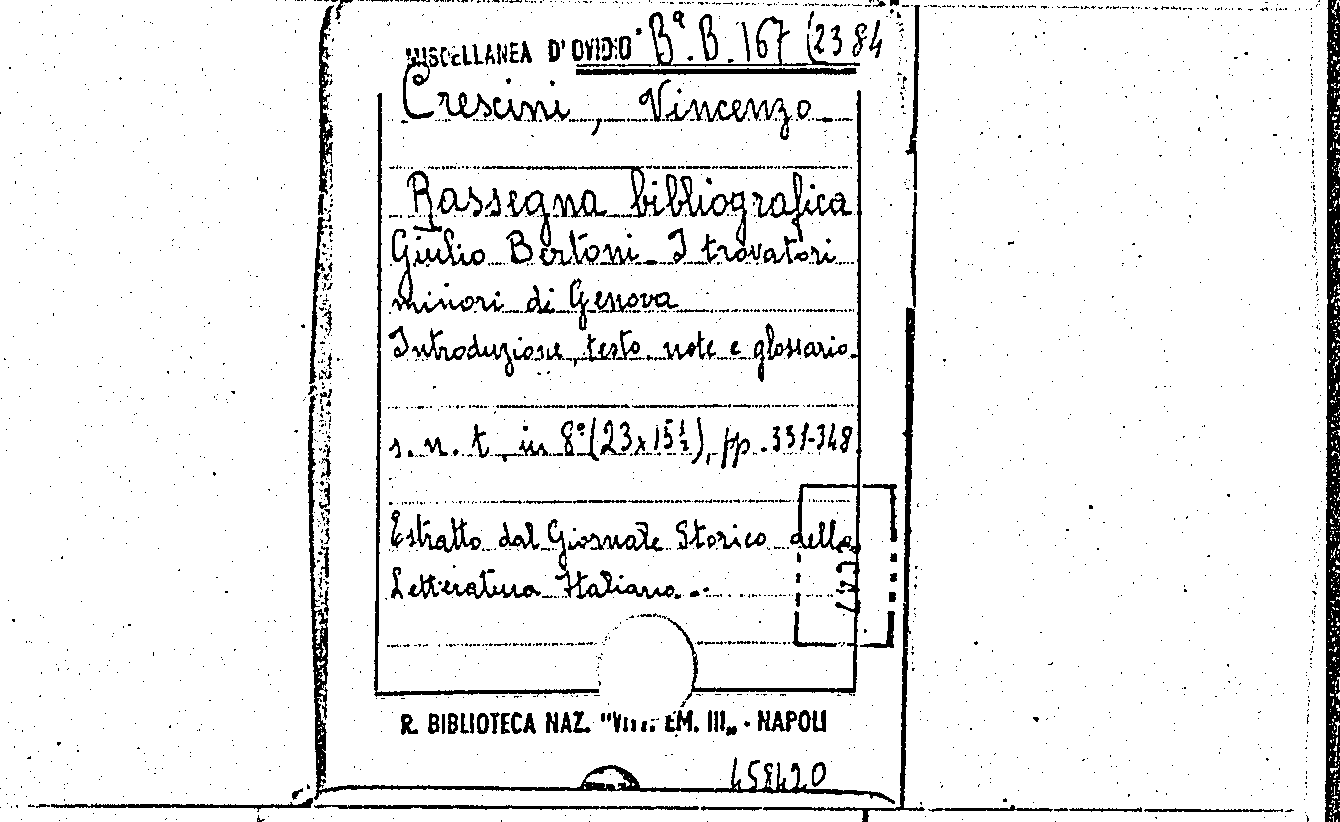 MISCELLANEA D'OVIDIO" Bª. B. 167 (2384
Crescini, Vincenzo
Rassegna bibliografica
Giulio Bertoni. I trovatori
minori di Genova
Introduzione, testo, note e glossario.
s. n. t., in 8º (23x15½), pp. 331-348
Estratto dal Giornale Storico della
Letteratura Italiana.
R. BIBLIOTECA NAZ. "VITT. EM. III„ - NAPOLI
458420